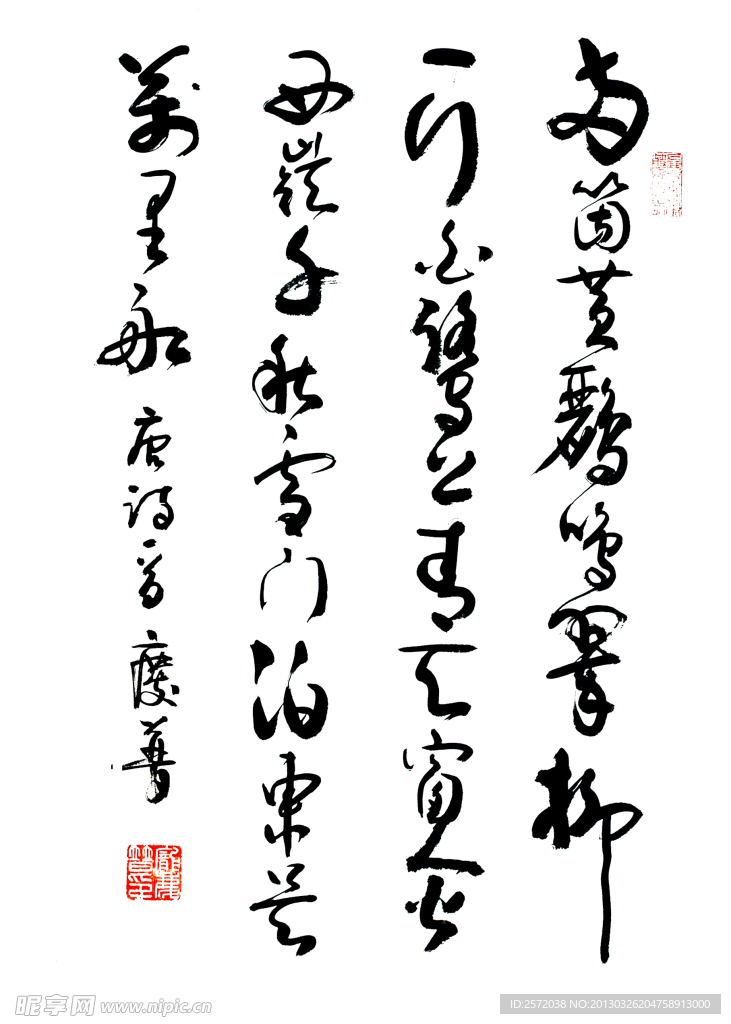 兩箇黃鸝鳴翠柳
一行白鷺上青天窗含
西嶺千秋雪門泊東吳
萬里船 唐詩一首 慶普
昵享网 www.nipic.cn
ID:2572038 NO:20130326204758913000